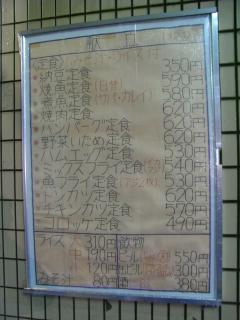 (定食)
納豆定食 350円
焼魚定食(白サ 590円
煮魚定食(サバ・カレイ) 580円
焼肉定食 620円
ハンバーグ定食 620円
野菜いため定食 620円
ハムエッグ定食 530円
ミックスフライ定食 540円
魚フライ定食(アジ 530円
トンカツ定食 620円
チキンカツ定食 570円
コロッケ定食 490円
ライス 大 310円 飲物
中 190円 ビル 大 550円
120円 ビル 300円
みそ汁 80円 380円